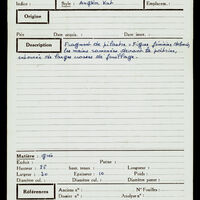 Indice : Style : Angkor Vat Emplacem. :
Origine
Pièce Date acquis. : Date inv. :
Description Fragment de pilastre : Figure féminine debout,
les mains ramenées devant la poitrine,
entourée de larges crosses de feuillage.
Matière : grès
Enduit : Patine :
Hauteur : Haut. tenon : Longueur :
Largeur : 20 Epaisseur : 10 Poids :
Diamètre col. : Diamètre panse :
Références Ancien n° : N° Fouilles :
Dossier n° : Dossier n° :